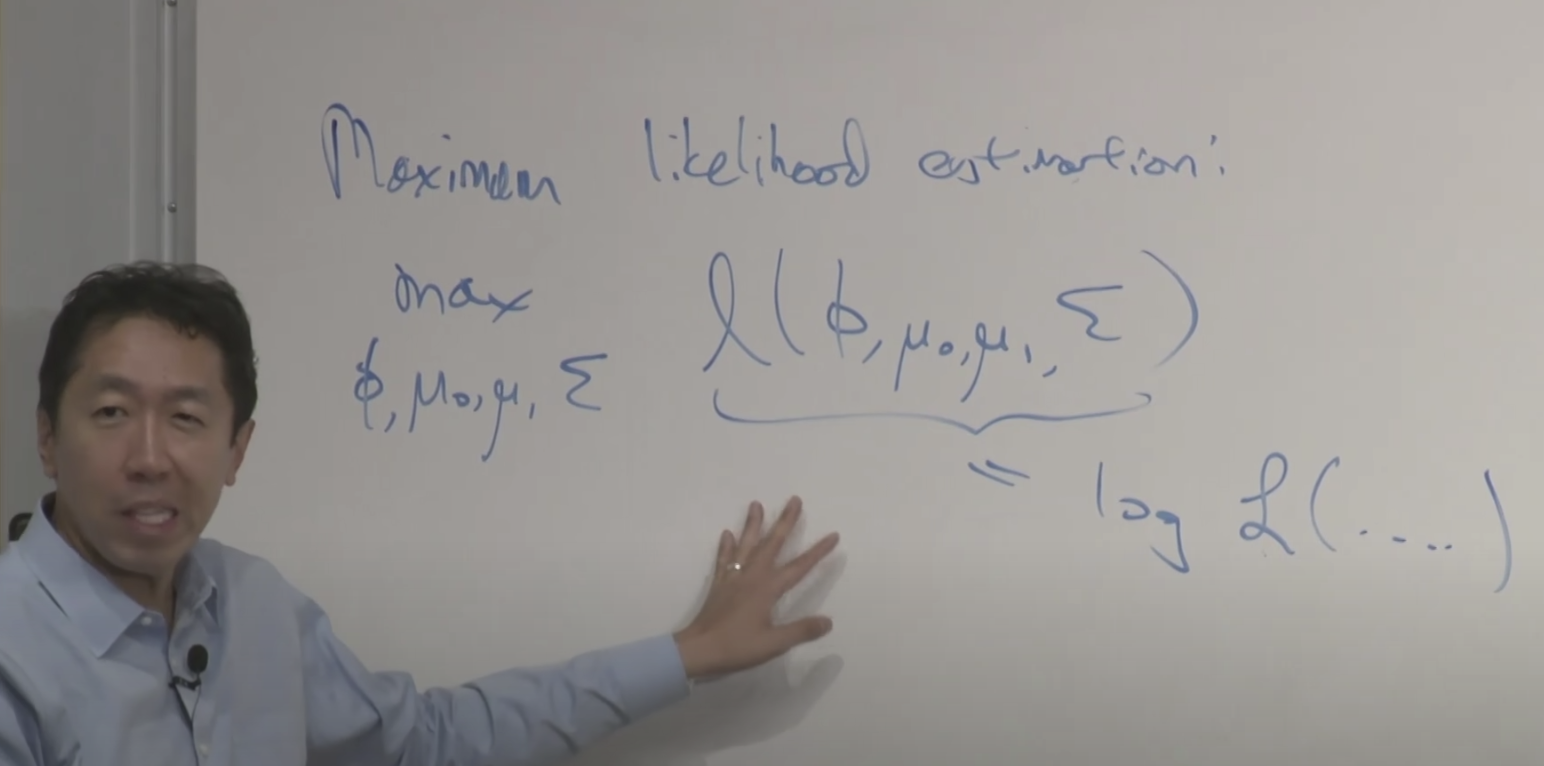 Maximum likelihood estimation:
max ℓ(ϕ, μ₀, μ₁, Σ)
ϕ, μ₀, μ₁, Σ
= log ℒ(....)